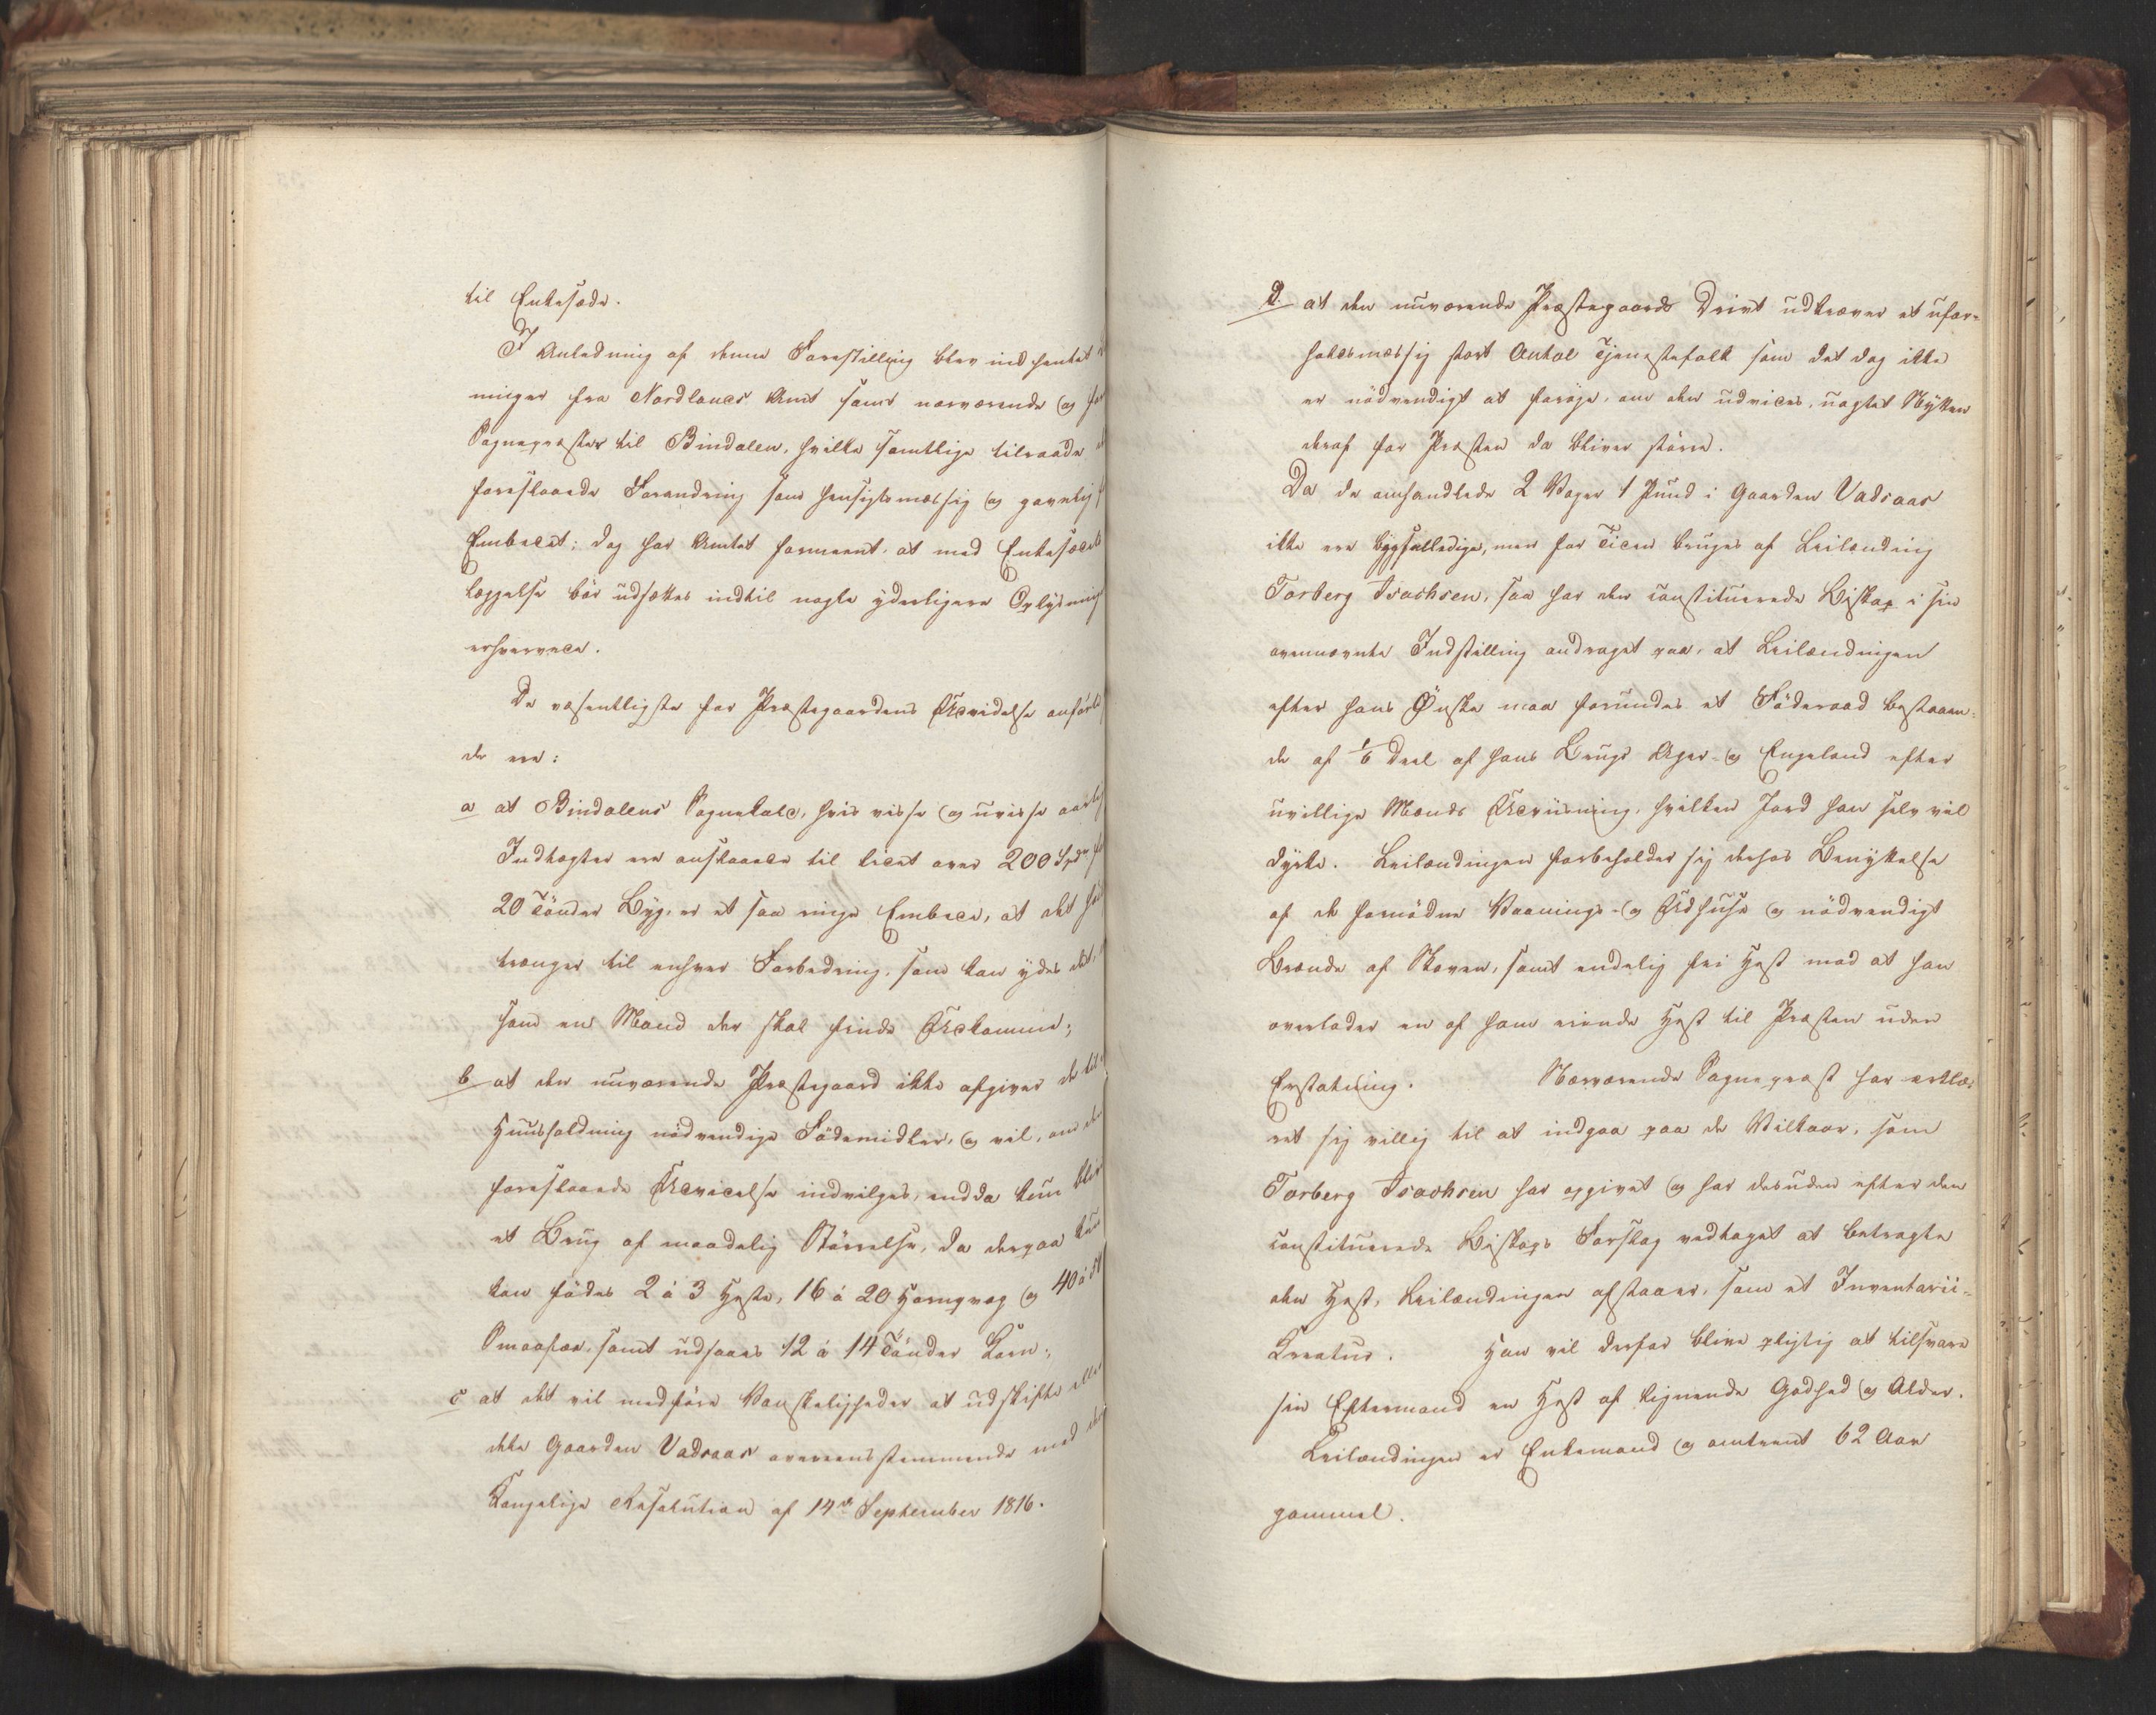 til Enkesæde.
I Anledning af denne Forestilling blev indhentet
ninger fra Nordlands Amt samt nærværende og
Sognepræster til Bindalen, hvilke samtlige tilraade
foreslaaede Forandring som hensigtsmæssig og gavnlig
Embedet; dog har Amtet formeent, at med Enkesædets
læggelse bör udsættes indtil nogle yderligere Oplysning
erhvervede.
De væsentligste for Præstegaardens Udvidelse anförte
de ere:
a at Bindalens Sognekald, hvis visse og uvisse aarlig
Indtægter ere anslaaede til lidet over 200 Spdr
20 Tönder Byg, er et saa ringe Embede, at det
trænger til enhver Forbedring, som kan ydes det,
som en Mand der skal finde Udkomme;
b at den nuværende Præstegaard ikke afgiver de til
Huusholdning nödvendige Födemidler, og vil, om den
foreslaaede Udvidelse indvilges, endda kun blive
et Brug af maadelig Störrelse, da derpaa kun
kan födes 2 à 3 Heste, 16 à 20 Hornqvæg og 40 à
Smaafæe, samt udsaaes 12 à 14 Tönder Korn;
c at det vil medföre Vanskeligheder at udskifte eller
dele Gaarden Vadsaas overeensstemmende med den
Kongelige Resolution af 14de September 1816.
d. at den nuværende Præstegaards Drivt udkræver et ufor-
holdsmæssig stort Antal Tjenestefolk som det dog ikke
er nödvendigt at foröge, om den udvides, uagtet Nytten
deraf for Præsten da bliver större.
Da de omhandlede 2 Voger 1 Pund i Gaarden Vadsaas
ikke ere bygselledige, men for Tiden bruges af Leilænding
Torberg Isachsen, saa har den constituerede Biskop i sin
ovennævnte Indstilling andraget paa, at Leilændingen
efter hans Önske maa forundes et Föderaad bestaaen-
de af 1/6 Deel af hans Brugs Ager- og Engeland efter
uvillige Mænds Udviisning, hvilken Jord han selv vil
dyrke. Leilændingen forbeholder sig derhos Benyttelse
af de fornödne Vaanings- og Udhuse og nödvendigt
Brænde af Skoven, samt endelig fri Hest mod at han
overlader en af ham eiende Hest til Præsten uden
Erstatning. Nærværende Sognepræst har erklæ-
ret sig villig til at indgaa paa de Vilkaar, som
Torberg Isachsen har opgivet og har desuden efter den
constituerede Biskops Forslag vedtaget at betragte
den Hest, Leilændingen afstaaer, som et Inventarii-
Kreatur. Han vil derfor blive pligtig at tilsvare
sin Eftermand en Hest af lignende Godhed og Alder.
Leilændingen er Enkemand og omtrent 62 Aar
gammel.